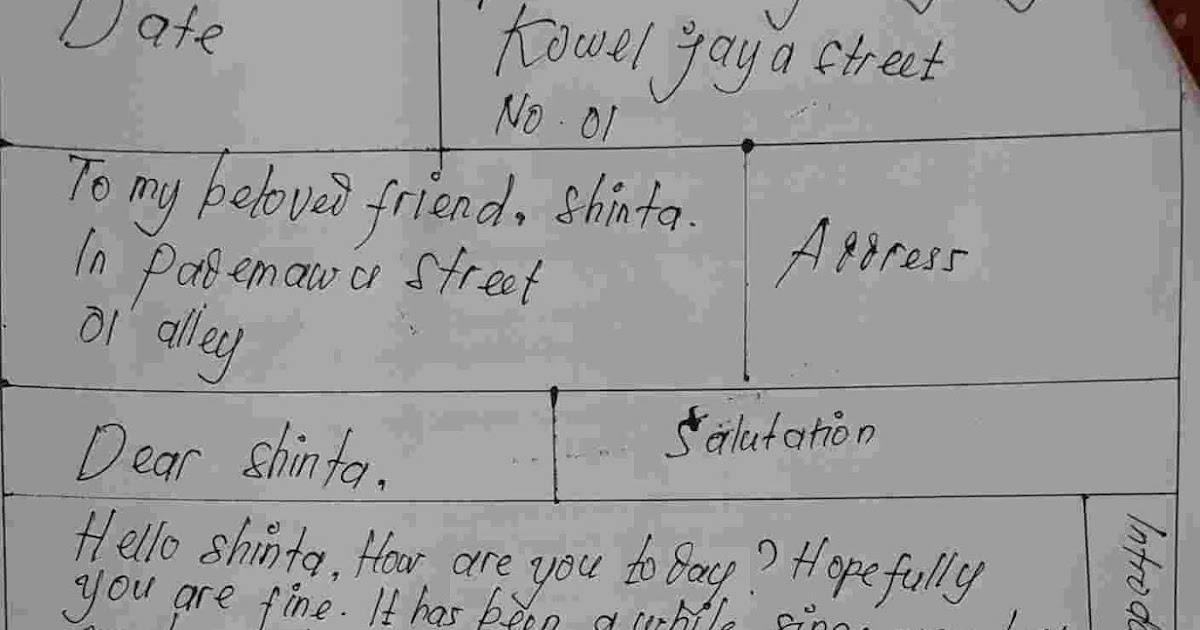 Date
Kowel jaya street
No. 01
To my beloved friend, shinta.
In pademawu street
01 alley
Address
Dear shinta,
Salutation
Hello shinta, How are you today? Hopefully
you are fine. It has been a while
Introd